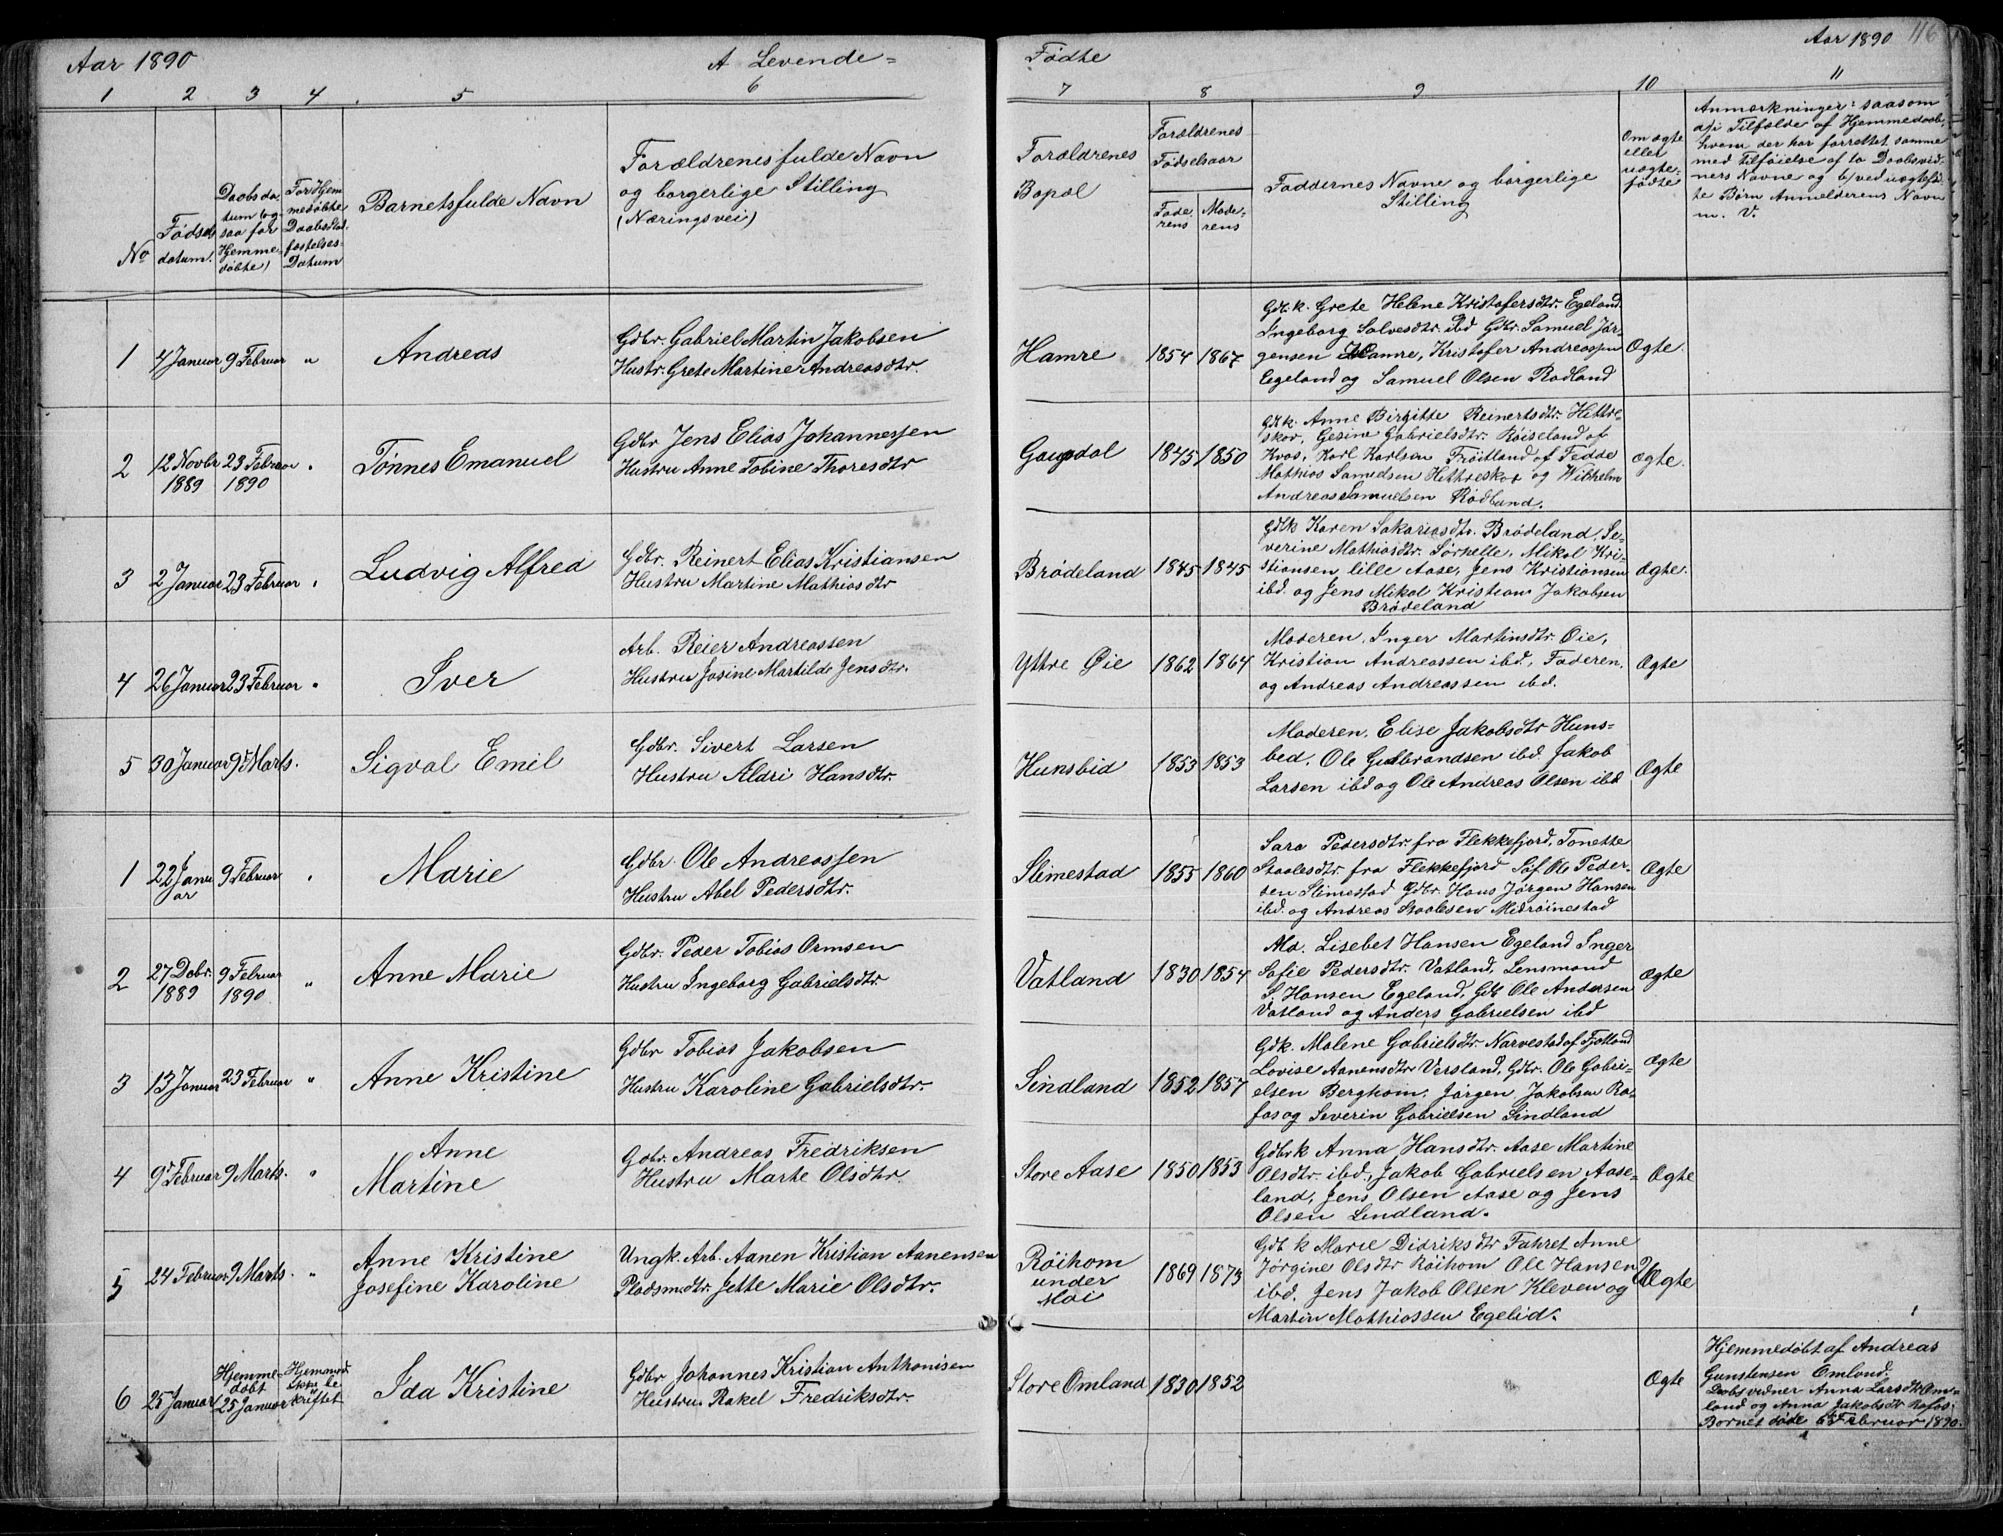 Aar 1890
A Levende=
Fødte
Aar 1890
116
1 2 3 4 5 6 7 8 9 10 11
No
Fødsels
datum.
Daabsda
tum (og
saa for
Hjemme-
døbte)
For Hjem
medøbte
Daabs Stad
fæstelses-
Datum
Barnets fulde Navn
Forældrenes fulde Navn
og borgerlige Stilling
(Næringsvei)
Forældrenes
Bopæl
Forældrenes
Fødselsaar
Fade
rens
Mode-
rens
Faddernes Navne og borgerlige
Stilling
Om ægte
eller
uægte-
fødte
Anmærkninger: saasom
a) i Tilfælde af Hjemmedaab,
hvem der har forrettet samme
med tilføielse af to Daabsvid-
ners Navne og b) ved uægtefød-
te Børn Anmelderens Navn
m. V.
1 4 Januar 9 Februar " Andreas
Gdbr. Gabriel Martin Jakobsen
Hustr. Grete Martine Andreasdtr.
Hamre 1854 1867
Gdb.k. Grete Helene Kristofersdtr. Egeland.
Ingeborg Salvesdtr. ibd Gdbr. Samuel Jør-
gensen Hamre, Kristofer Andreassen
Egeland og Samuel Olsen Rødland
Ægte.
2 12 Novbr 1889 23 Februar 1890 " Tønnes Emanuel
Gdbr Jens Elias Johannessen
Hustru Anne Tobine Thoresdtr
Gaupdal 1845 1850
Gdk. Anne Birgitte Reinertsdtr. Hettre-
skor, Gesine Gabrielsdtr. Røiseland af
Kvas, Karl Karlsen Frøitland af Fedde
Mathias Samuelsen Hettreskor og Wilhelm
Andreas Samuelsen Rødland.
Ægte.
3 2 Januar 23 Februar " Ludvig Alfred
Gdbr. Reinert Elias Kristiansen
Hustru Martine Mathiasdtr
Brødeland 1845 1845
Gdbk Karen Sakariasdtr. Brødeland, Se-
verine Mathiasdtr. Sørhelle, Mikal Kri-
stiansen lille Aase, Jens Kristiansen
ibd. og Jens Mikal Kristian Jakobsen
Brødeland
Ægte.
4 26 Januar 23 Februar " Iver
Arb. Reier Andreassen
Hustru Josine Martilde Jensdtr.
Yttre Øie 1862 1864
Moderen, Inger Martinsdtr. Øie,
Kristian Andreassen ibd, Faderen,
og Andreas Andreassen ibd.
Ægte
5 30 Januar 9de Marts. Sigval Emil
Gdbr. Sivert Larsen
Hustru Aldri Hansdtr.
Hunsbid 1853 1853
Moderen, Elise Jakobsdtr Huns-
bed, Ole Gulbrandsen ibd. Jakob
Larsen ibd og Ole Andreas Olsen ibd
Ægte
1 22 Janu ar 9 Februar " Marie
Gdbr. Ole Andreassen
Hustru Abel Pedersdtr.
Slimestad 1855 1860
Sara Pedersdtr fra Flekkefjord, Tonette
Staalesdtr. fra Flekkefjord Søf. Ole Peder-
sen Slimestad Gdbr. Hans Jørgen Hansen
ibd. og Andreas Staalesen Midrøinestad
Ægte
2 27 Debr. 1889 9 Februar 1890 " Anne Marie
Gdbr. Peder Tobias Ormsen
Hustru Ingeborg Gabrielsdtr.
Vatland 1830 1854
Md. Lisebet Hansen Egeland Inger
Sofie Pedersdtr. Vatland, Lensmand
S. Hansen Egeland, Gdb Ole Andersen
Vatland og Anders Gabrielsen ibd
Ægte
3 13 Januar 23 Februar " Anne Kristine
Gdbr Tobias Jakobsen
Hustru Karoline Gabrielsdtr.
Sindland 1852 1857
Gdk. Malene Gabrielsdtr Narvestad af Fjotland
Lovise Aanensdtr Versland, Gdbr. Ole Gabri-
elsen Berghom, Jørgen Jakobsen Ra-
fos og Severin Gabrielsen Sindland
Ægte
4 9de Februar 9 Marts. " Anne
Martine
Gdbr. Andreas Fredriksen
Hustru Marte Olsdtr
Store Aase 1850 1853
Gdbrk Anna Hansdtr. Aase Martine
Olsdtr. ibd., Jakob Gabrielsen Aase-
land, Jens Olsen Aase og Jens
Olsen Lindland.
Ægte
5 24 Februar 9 Marts. " Anne Kristine
Josefine Karoline
Ungk. Arb. Aanen Kristian Aanensen
Pladsmdtr. Jette Marie Olsdtr.
Røihom
under
Moi
1869 1873
Gdb k Marie Didriksdtr Fahret Anne
Jørgine Olsdtr Røihom Ole Hansen
ibd. Jens Jakob Olsen Kleven og
Martin Mathiassen Egelid.
UÆgte
6 25 Januar Hjemme-
døbt
25 Januar
Hjemmed.
ikke be
kriftet
Ida Kristine
Gdbr Johannes Kristian Anthonisen
Hustru Rakel Fredriksdtr.
Store Omland 1830 1852
Ægte
Hjemmedøbt af Andreas
Gunstensen Omland.
Daabsvidner Anna Larsdtr Om-
land og Anna Jakobsdtr Rafos.
Barnet døde 6te Februar 1890.